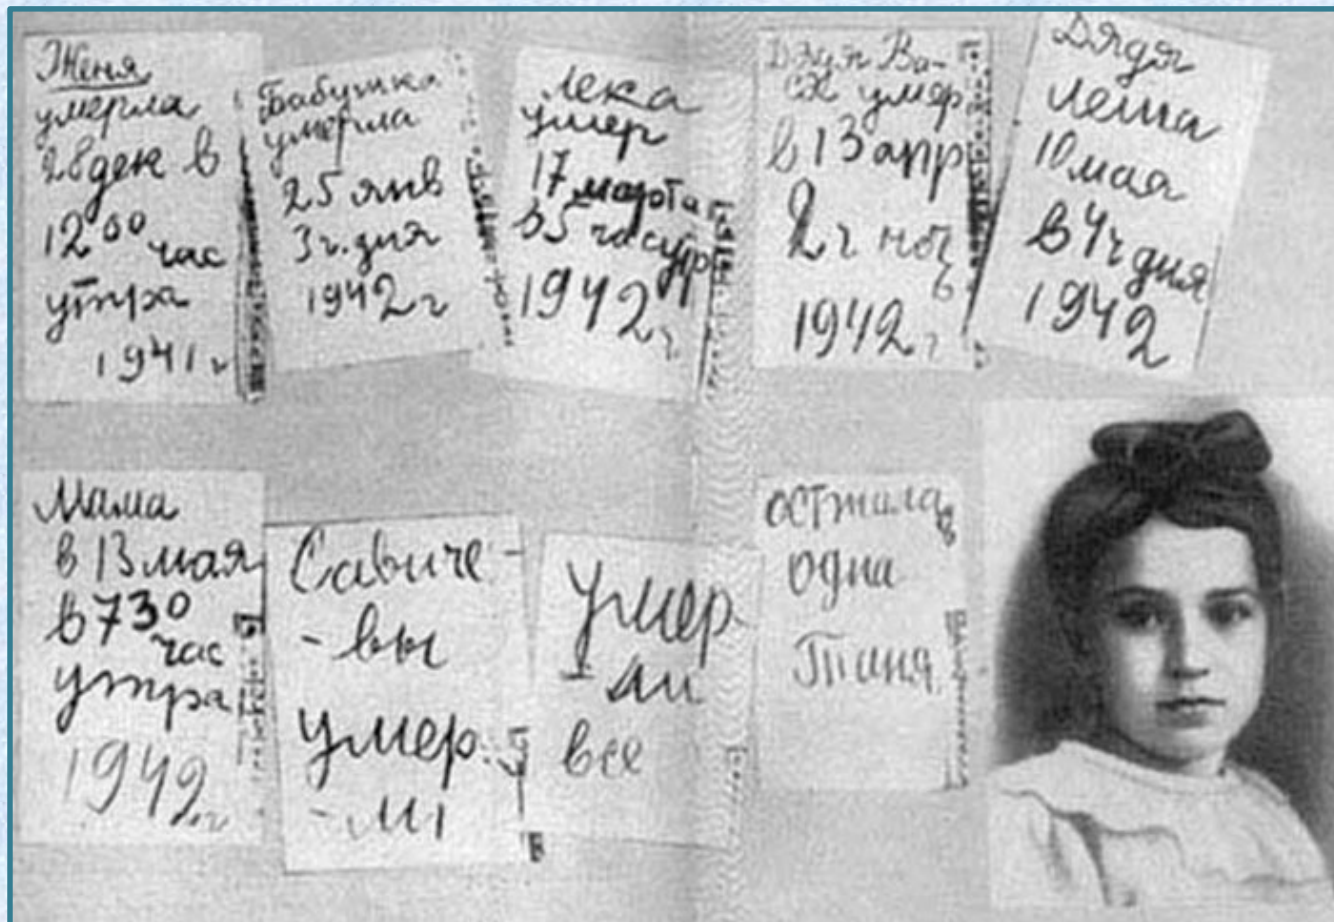 Женя
умерла
28 дек в
12 00 час
утра
1941 г
Бабушка
умерла
25 янв
3 ч. дня
1942 г
Лека
умер
17 марта
в 5 час утр
1942 г
Дядя Ва-
ся умер
в 13 апр
2 ч ноч
ь
1942 г
Дядя
Леша
10 мая
в 4 ч дня
1942
Мама
в 13 мая
в 7 30
час
утра
1942 г
Савиче-
-вы
умер
-ли
Умер
-ли
все
Осталась
одна
Таня.